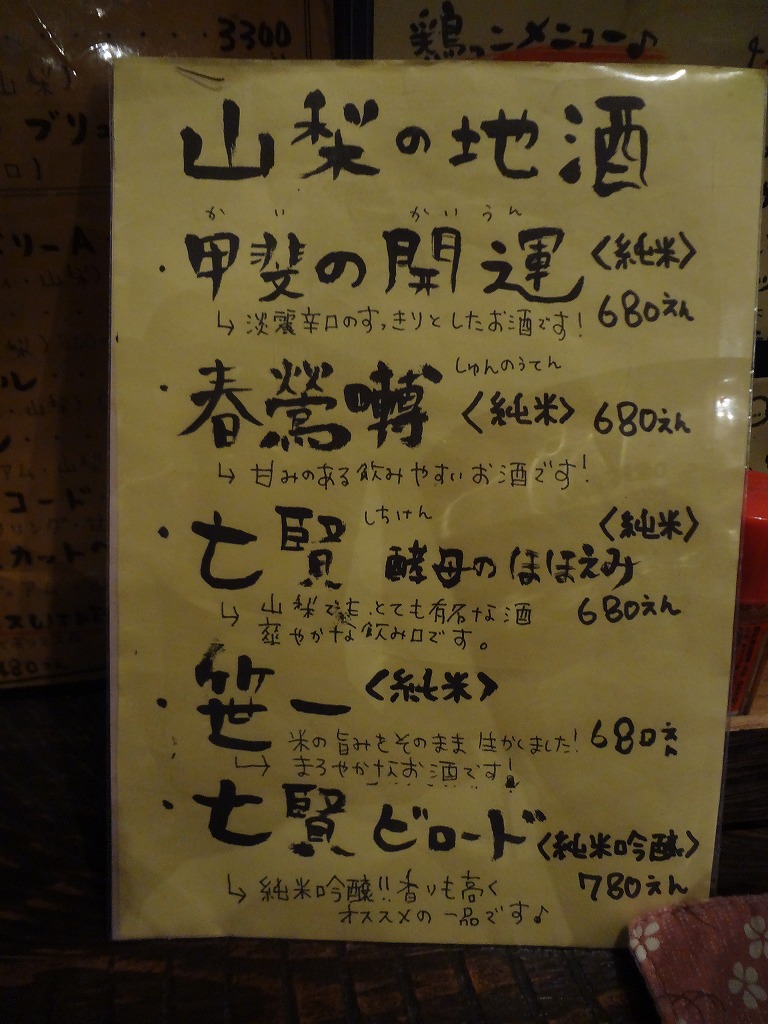 3300
鶏っ二メニュー♪
ブリュ
山梨の地酒
かい かいうん
・甲斐の開運 〈純米〉
↳ 淡麗辛口のすっきりとしたお酒です! 680えん
・春鶯囀 しゅんのうてん 〈純米〉 680えん
↳ 甘みのある飲みやすいお酒です!
・七賢 しちけん 酵母のほほえみ 〈純米〉
↳ 山梨でも、とても有名な酒 680えん
爽やかな飲み口です。
・笹一 〈純米〉
米の旨みをそのまま生かしました! 680えん
↳ まろやかなお酒です!
・七賢 ビロード 〈純米吟醸〉
↳ 純米吟醸!!香りも高く 780えん
オススメの一品です♪
リーA
コード
カットの